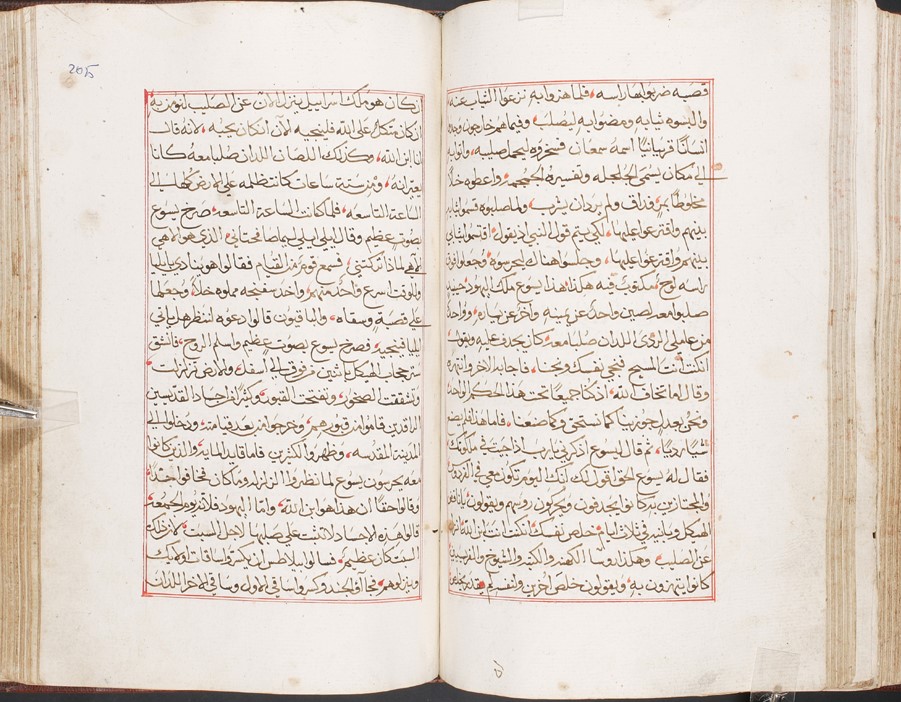 قصبه ضربوا بها راسه، فلما هزوا به نزعوا الثياب عنه،
والبسوه ثيابه ومضوا به ليصلب، وفيما هم خارجون وجدوا
انسانًا قريانيًا اسمه سمعان فسخروه ليحمل صليبه، واتوا به
الي مكان يسمي الجلجله وتفسيره الجمجمه، واعطوه خلًا
مخلوطًا بمر فذاق ولم يرد ان يشرب، ولما صلبوه قسموا ثيابه
بينهم واقترعوا عليها، لكي يتم قول النبي اذ يقول، اقتسموا ثيابي
بينهم واقترعوا عليها، وجلسوا هناك ليحرسوه، وجعلوا فوق
راسه لوح، مكتوب فيه هكذا، هذا يسوع ملك اليهود، حينيذ
صلبوا معه لصين واحد عن يمينه واخر عن يساره، وواحد
من عاملي الردي اللذان صلبا معه، كان يجدف عليه ويقول،
ان كنت انت المسيح فنجي نفسك ونجنا، فاجابه الاخر وانتهره
وقال اما تخاف الله، اذ كنا جميعًا تحت هذا الحكم الواحد
ونحن بعدل جوزينا كما نستحق وكما صنعنا، فاما هذا فلم يصنع
شيًا رديًا، ثم قال ليسوع اذكرني يا رب اذا جيت في ملكوتك
فقال له يسوع الحق اقول لك انك اليوم تكون معي في الفردوس
والمجتازين به كانوا يجدفون ويحركون رووسهم ويقولون، يا ناقض
الهيكل وبانيه في ثلاث ايام خلص نفسك، ان كنت انت ابن الله انزل
عن الصليب، وهكذا روسا الكهنه والكتبه والشيوخ والفريسيين
كانوا يتهزون به، ويقولون خلص اخرين ولنفسه لم يقدر يخلص
205
ان كان هو ملك اسراييل ينزل الان عن الصليب لنومن به
ان كان متكل علي الله فلينجيه الان ان كان يحبه، لانه قال
انا ابن الله، وكذلك اللصان اللذان صلبا معه كانا
يعيرانه، ومن ستة ساعات كانت ظلمه علي الارض كلها الي
الساعة التاسعه، فلما كانت الساعة التاسعه، صرخ يسوع
بصوت عظيم وقال ايلي ايلي لماصافختاني، الذي هو الاهي
الاهي لماذا تركتني، فسمع قوم من القيام فقالوا هو ينادي ايليا
وللوقت اسرع واحد منهم، واخذ سفنجه مملوه خلًا، وجعلها
علي قصبة وسقاه، والباقيون قالوا دعوه لننظر هل ياتي
ايليا فينجيه، فصرخ يسوع بصوت عظيم واسلم الروح، فانشق
ستر حجاب الهيكل باثنين من فوق الي اسفل، والارض تزلزلت
وتشققت الصخور، وتفتحت القبور، وكثيرًا من اجساد القديسين
الراقدين قاموا من قبورهم، وخرجوا من بعد قيامته، ودخلوا الي
المدينة المقدسه، وظهروا لكثيرين فلما قايد المايه والذين كانوا
معه يحرسون يسوع لما نظروا الزلزله وما كان فخافوا جدًا
وقالوا حقًا ان هذا هو ابن الله، واما اليهود فلانه يوم الجمعه
قالوا هذه الاجساد لا تثبت علي صلبها لاجل السبت، لان ذلك
السبت كان عظيم، فسالوا بيلاطس ان يكسروا ساقات اولايك
وينزلوهم، فجا الجند وكسروا ساقي الاول وساقي الاخر اللذان